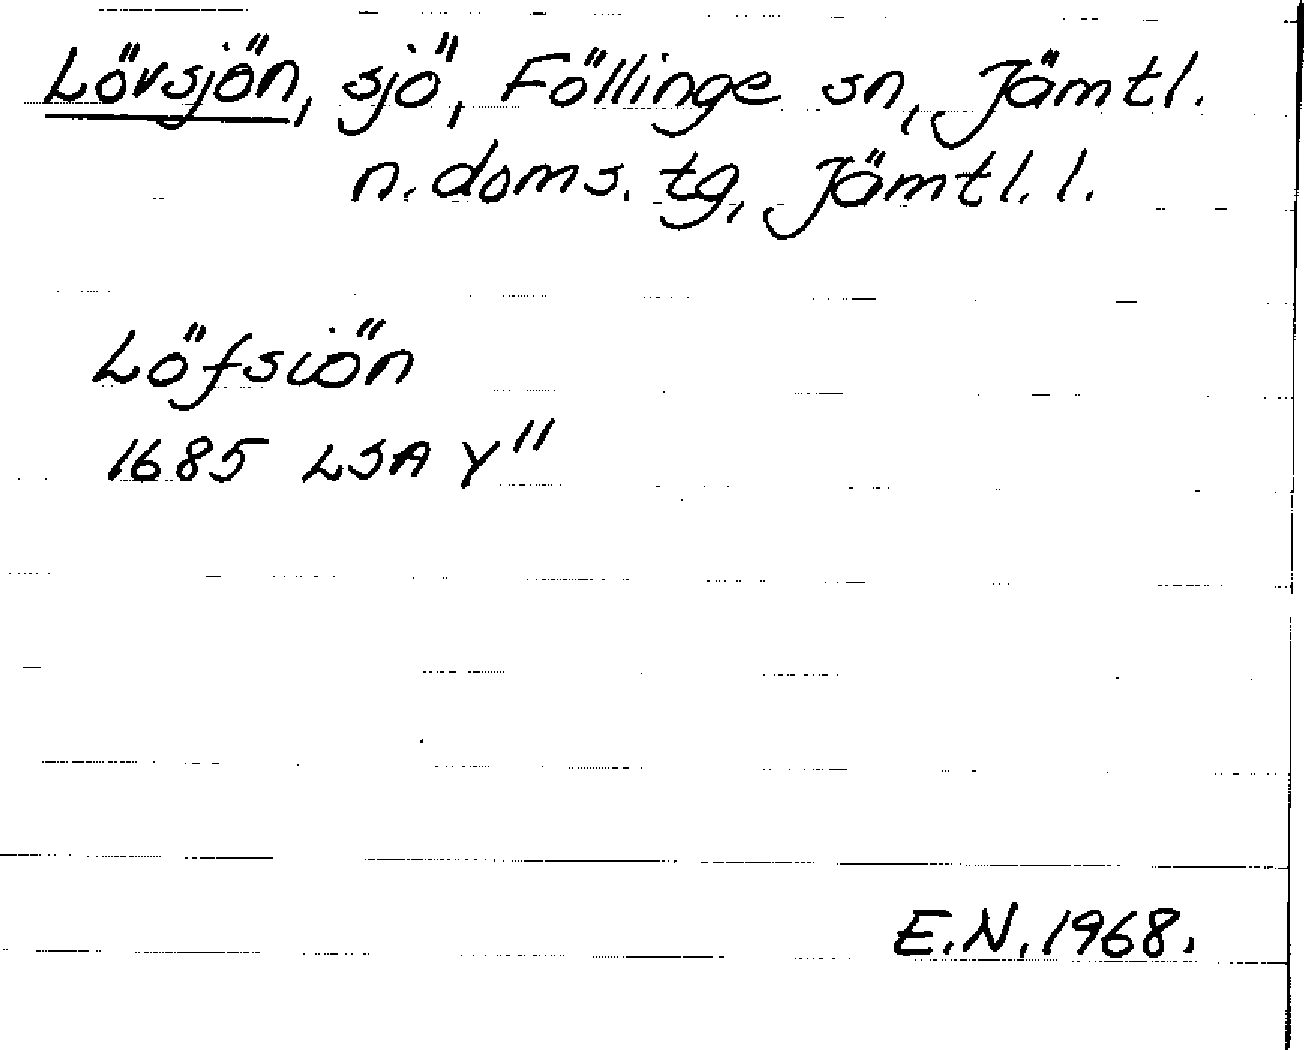 Lövsjön, sjö, Föllinge sn, Jämtl.
n. doms. tg, Jämtl. l.
Löfsiön
1685 LSA Y"
E.N. 1968.